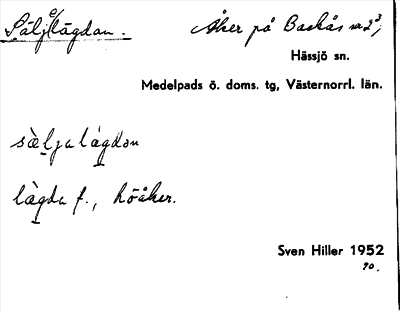 Säljelägdan. Åker på Backås nr 2³,
Hässjö sn.
Medelpads ö. doms. tg, Västernorrl. län.
sàljalàgdan
làgda f., höåker.
Sven Hiller 1952
90.